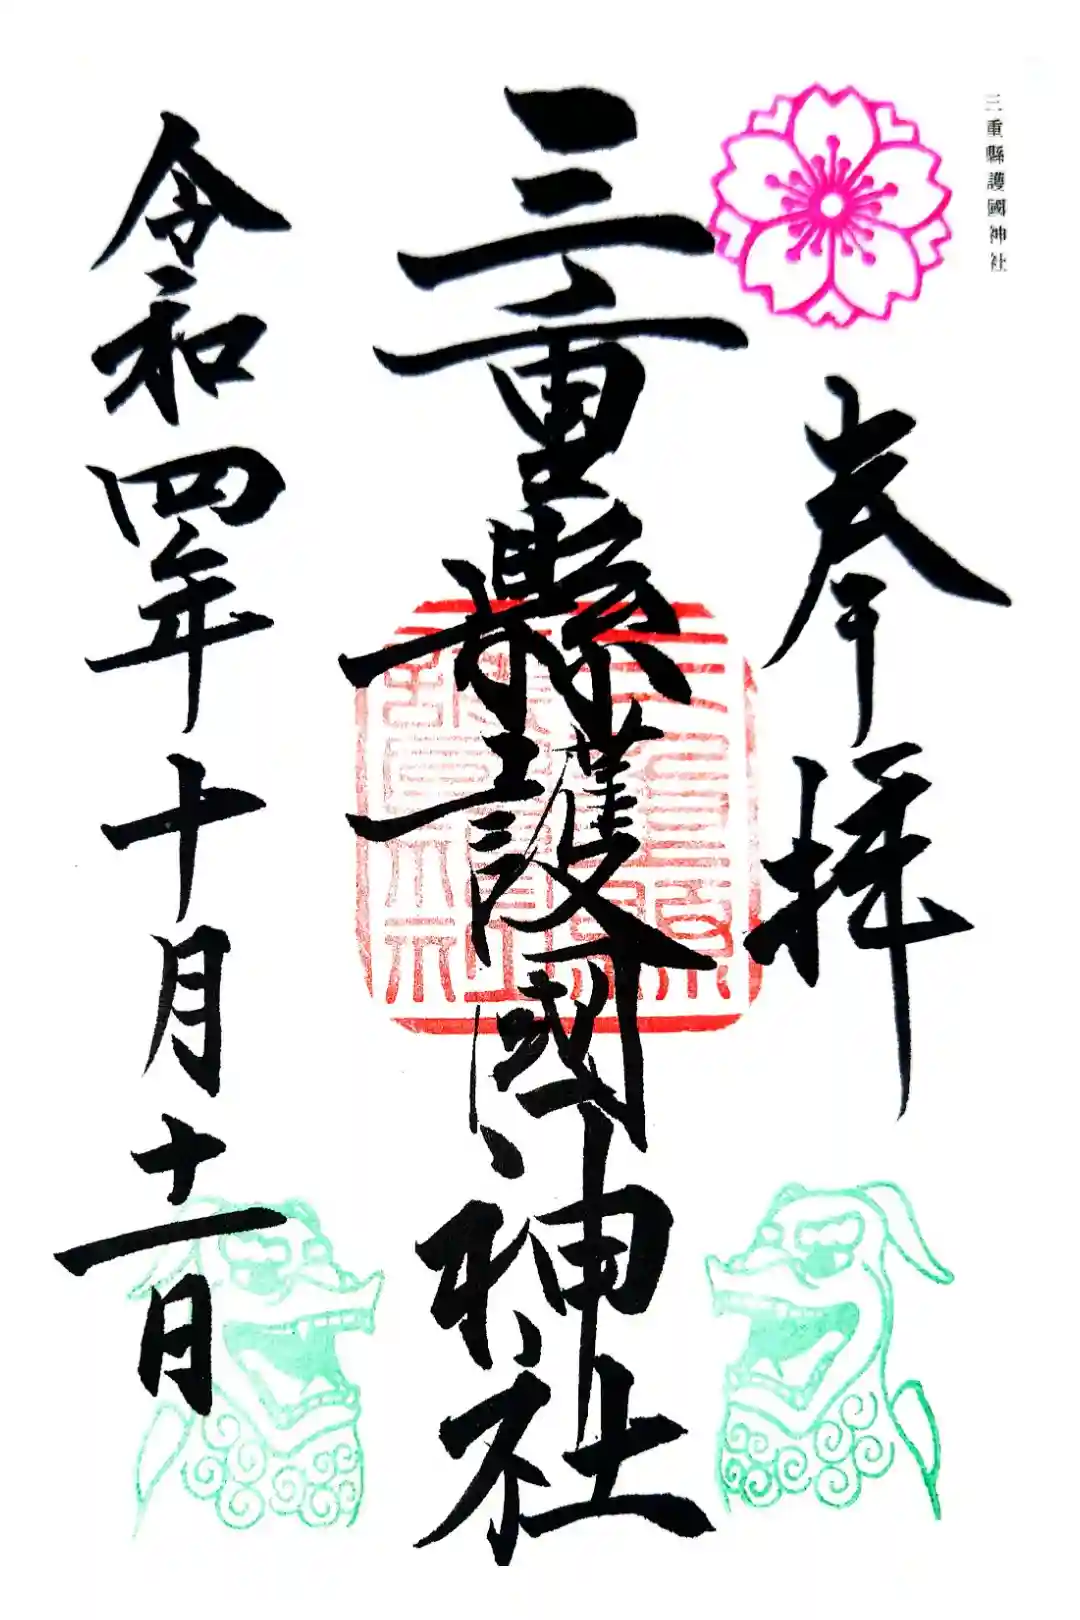 三重縣護國神社
奉拝
三重縣護國神社
令和四年十月十二日